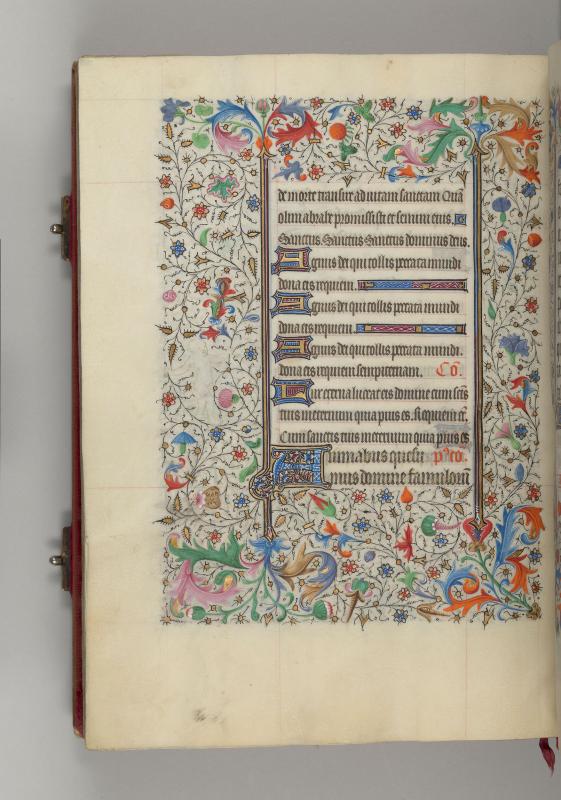 de morte transire ad vitam sanctam Qua
olim abrahe promisisti et semini eius.
Sanctus. Sanctus. Sanctus dominus deus.
Agnus dei qui tollis peccata mundi
dona eis requiem.
Agnus dei qui tollis peccata mundi
dona eis requiem.
Agnus dei qui tollis peccata mundi.
dona eis requiem sempiternam. Cõ.
Lux eterna luceat eis domine cum sc̃is
tuis in eternum quia pius es. Requiem et̃.
Cum sanctis tuis in eternum quia pius es
Animabus quesu pꝰco.
mus domine famulorũ